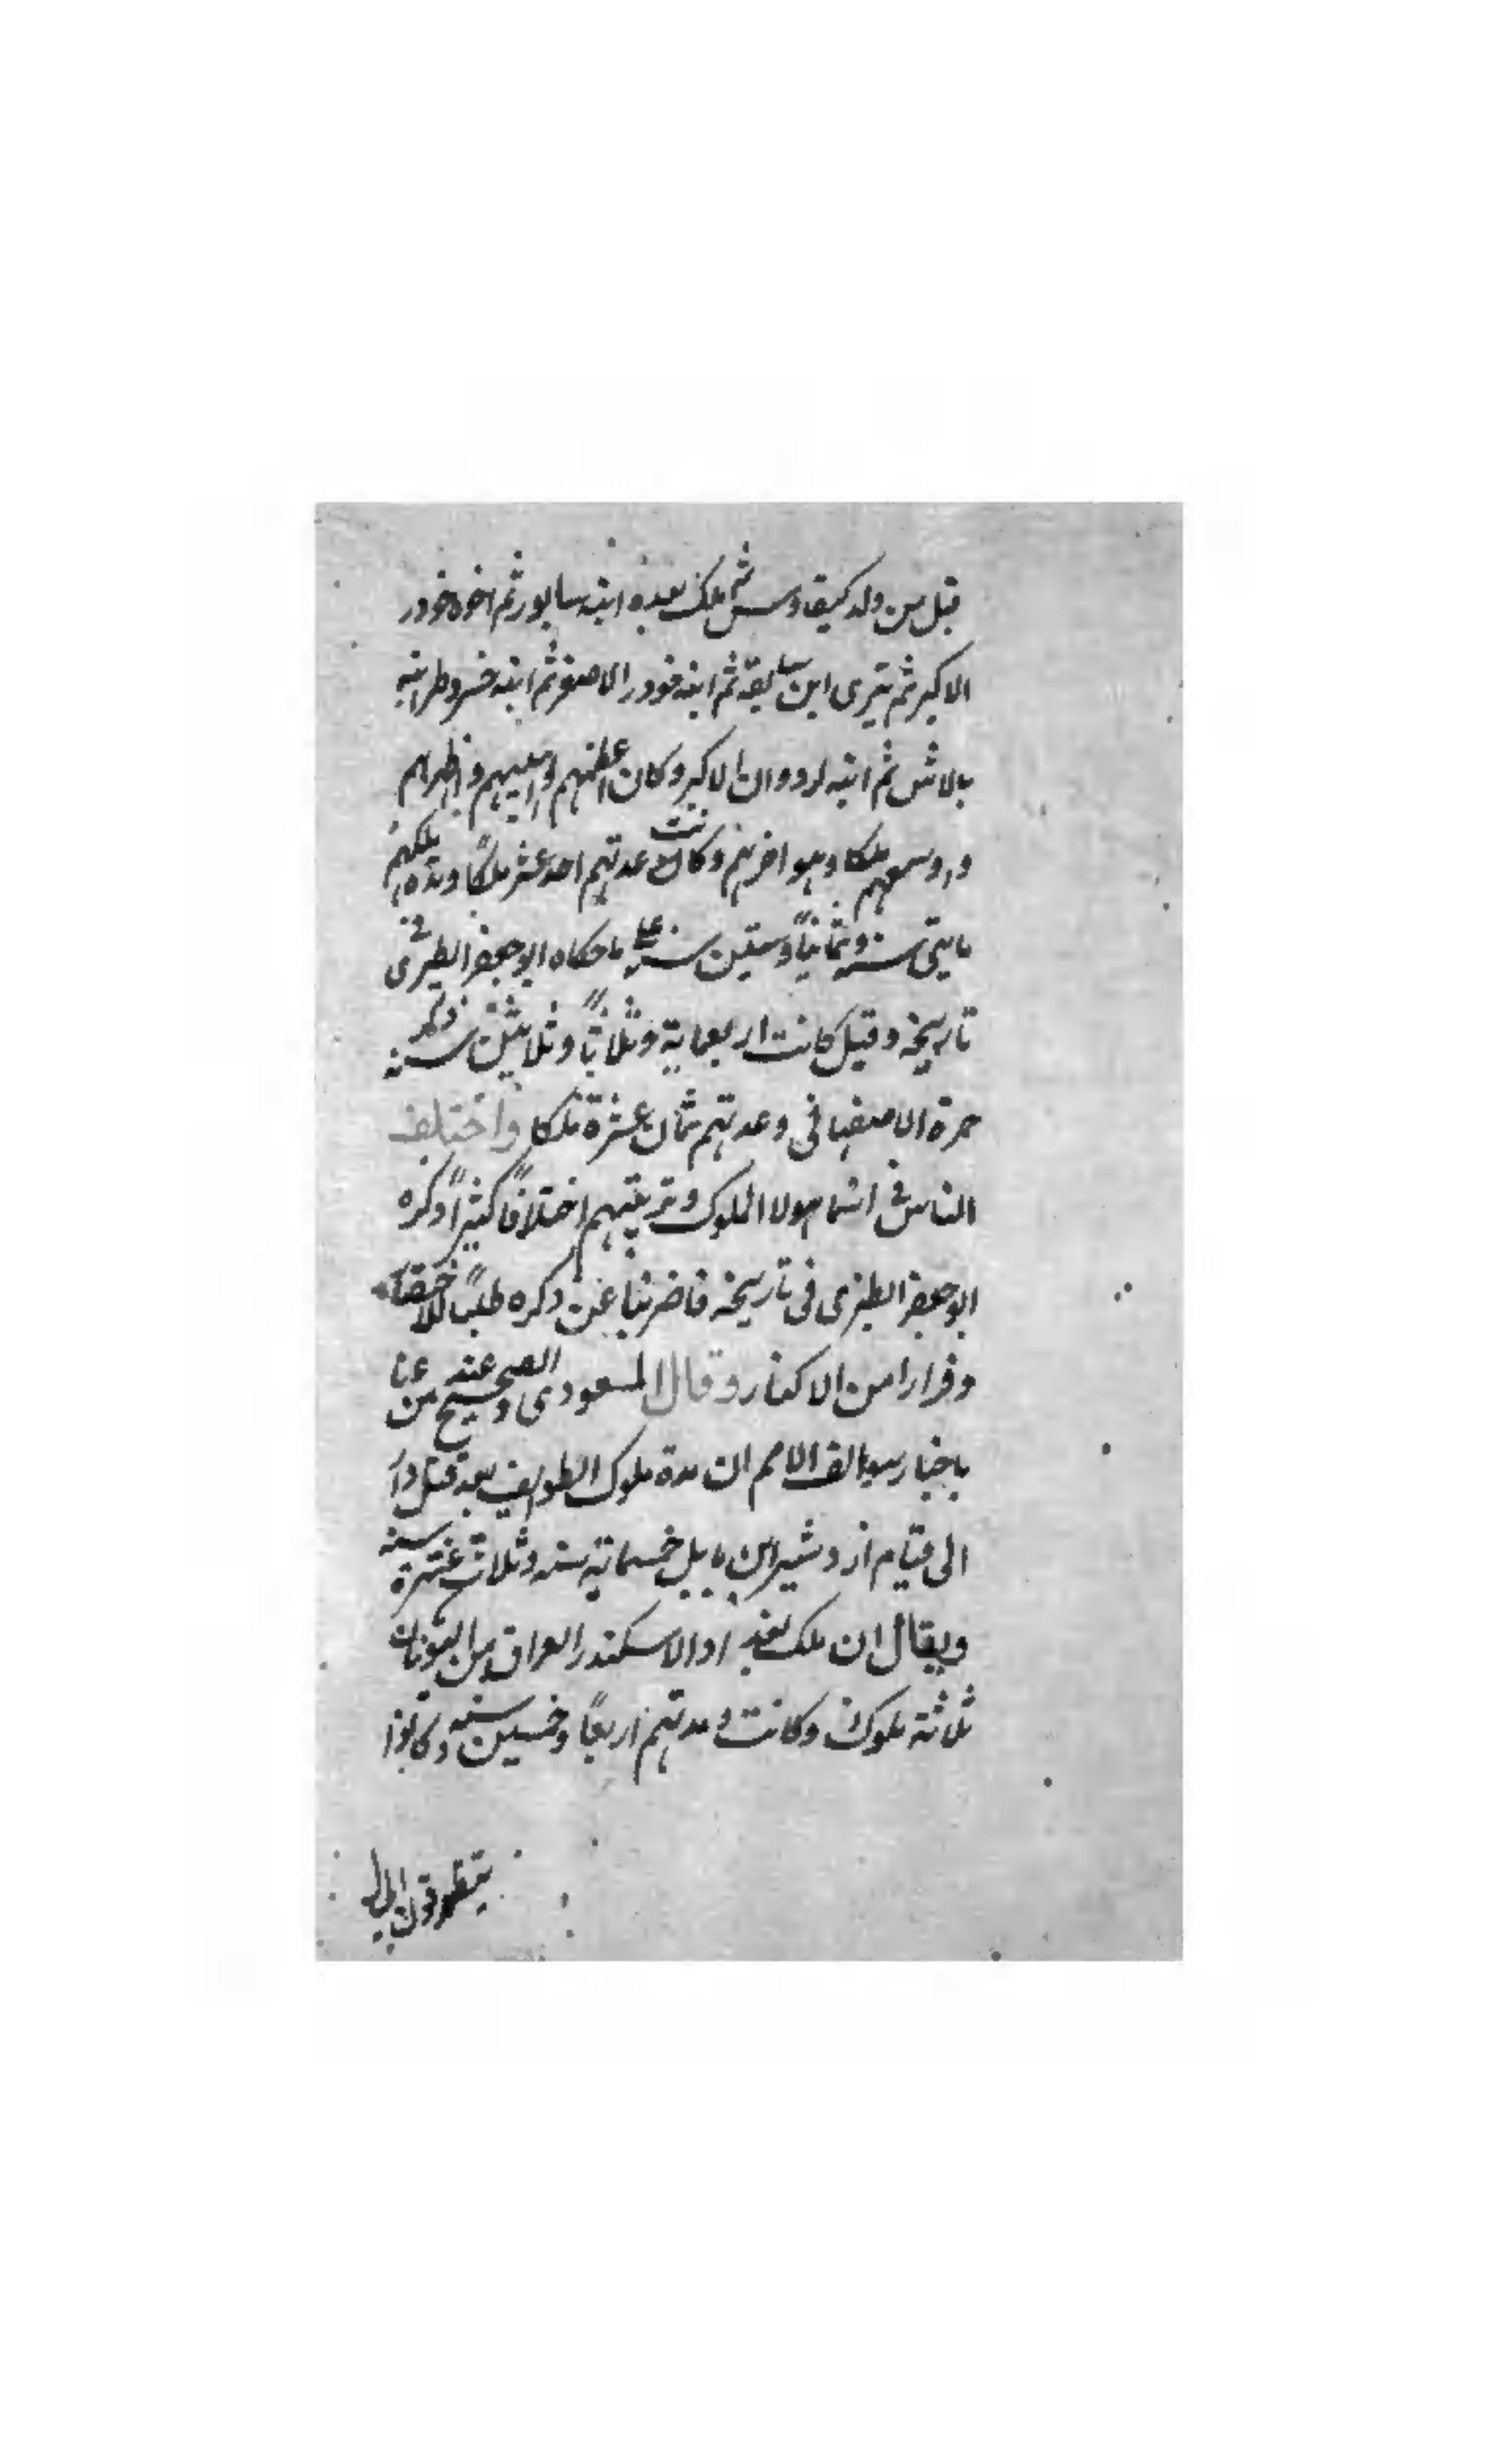 قبل من ولد كيقاوس ثم ملك بعده ابنه سابور ثم اخوه خودر
الاكبر ثم تيرى ابن سابقه ثم ابنه خودر الاصغر ثم ابنه خسرو ابنه
بلاش ثم ابنه اردوان الاكبر وكان اعظمهم واهيبهم واظهرهم
واوسعهم ملكا وهو اخرهم وكانت عدتهم احد عشر ملكًا ومدة ملكهم
مايتى سنه وثمانيًا وستين سنه على ما حكاه ابو جعفر الطبرى فى
تاريخه وقيل كانت اربعماية وثلاثًا وثلاثين سنه ذكر
حمزة الاصفهانى وعدتهم ثمان عشرة ملكا واختلف
الناس فى اسما هولا الملوك وترتيبهم اختلافًا كثيرًا ذكره
ابو جعفر الطبرى فى تاريخه فاضربنا عن ذكره طلبًا للاختصار
وفرارا من الاكثار وقال المسعودى والصحيح عند من عنا
باخبار سوالف الامم ان مدة ملوك الطوايف بعد قتل دارا
الى قيام ازدشير ابن بابل خمسماية سنه وثلاث عشرة سنه
ويقال ان ملك بعد الاسكندر العراق من اليونان
ثلاثة ملوك وكانت مدتهم اربعًا وخمسين سنه وكانوا
يتطرقون الى